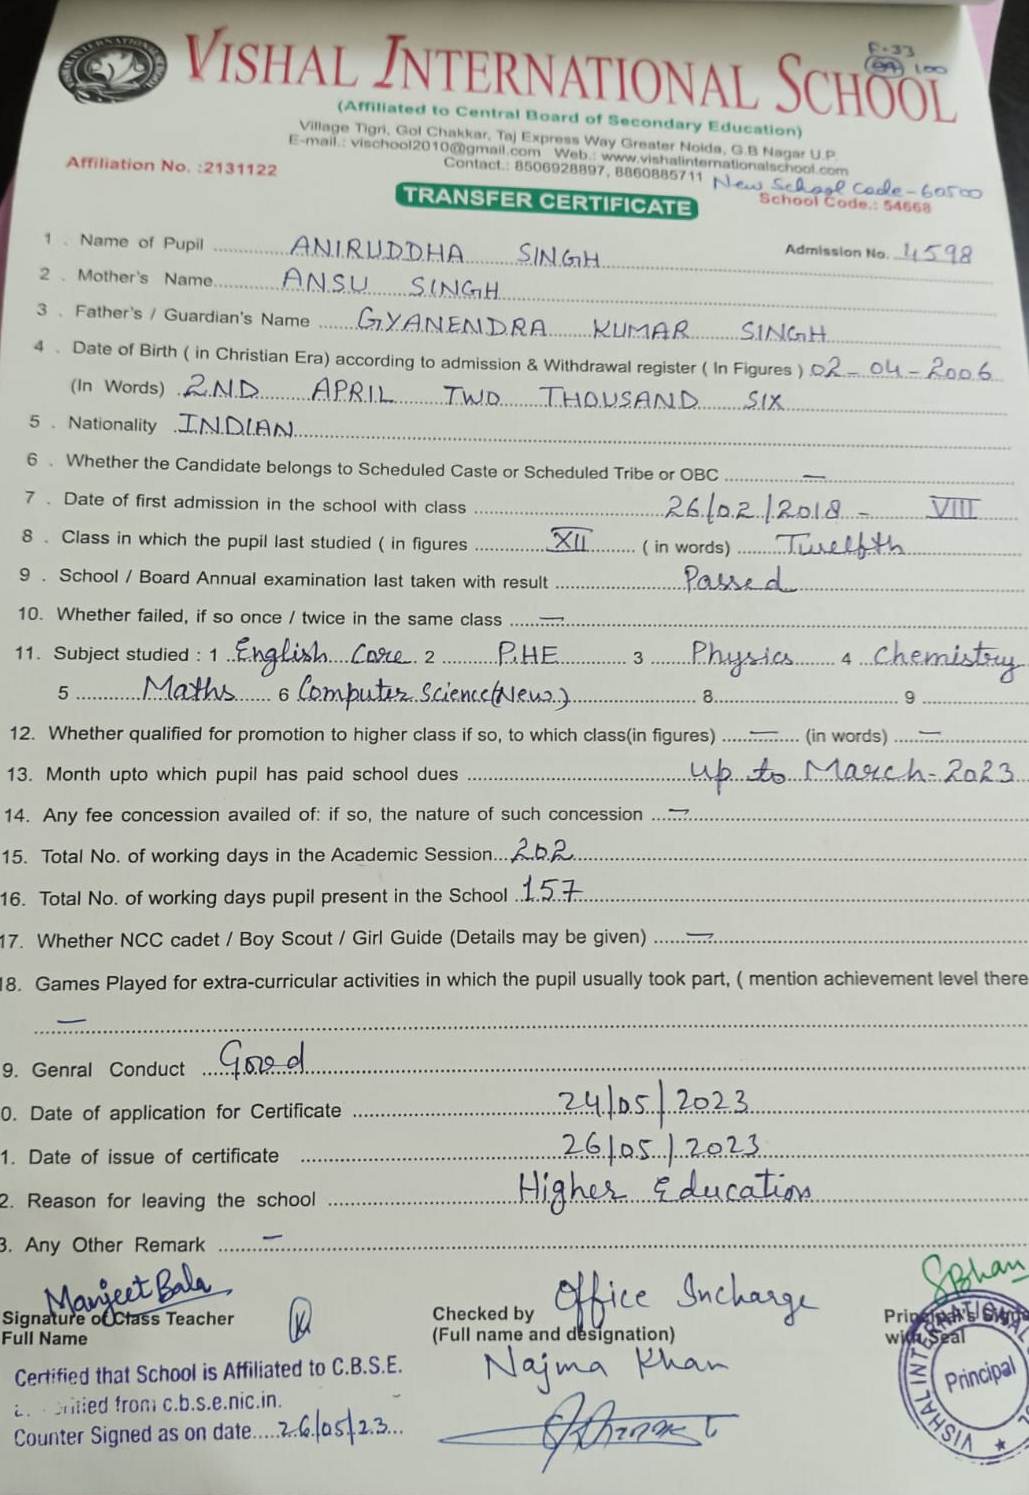 VISHAL INTERNATIONAL SCHOOL
F-33
100
(Affiliated to Central Board of Secondary Education)
Village Tigri, Gol Chakkar, Taj Express Way Greater Noida, G.B Nagar U.P.
E-mail.: vischool2010@gmail.com Web.: www.vishalinternationalschool.com
Contact.: 8506928897, 8860885711
New School Code - 60500
Affiliation No. :2131122
School Code.: 54668
TRANSFER CERTIFICATE
1 . Name of Pupil ANIRUDDHA SINGH Admission No. 4598
2 . Mother's Name ANSU SINGH
3 . Father's / Guardian's Name GYANENDRA KUMAR SINGH
4 . Date of Birth ( in Christian Era) according to admission & Withdrawal register ( In Figures ) 02-04-2006
(In Words) 2ND APRIL TWO THOUSAND SIX
5 . Nationality INDIAN
6 . Whether the Candidate belongs to Scheduled Caste or Scheduled Tribe or OBC —
7 . Date of first admission in the school with class 26/02/2018 - VIII
8 . Class in which the pupil last studied ( in figures XII ( in words) Twelfth
9 . School / Board Annual examination last taken with result Passed
10. Whether failed, if so once / twice in the same class —
11. Subject studied : 1 English Core 2 P.HE 3 Physics 4 Chemistry
5 Maths 6 Computer Science(New) 8 9
12. Whether qualified for promotion to higher class if so, to which class(in figures) — (in words) —
13. Month upto which pupil has paid school dues up to March-2023
14. Any fee concession availed of: if so, the nature of such concession —
15. Total No. of working days in the Academic Session 202
16. Total No. of working days pupil present in the School 157
17. Whether NCC cadet / Boy Scout / Girl Guide (Details may be given) —
18. Games Played for extra-curricular activities in which the pupil usually took part, ( mention achievement level there
—
9. Genral Conduct Good
0. Date of application for Certificate 24/05/2023
1. Date of issue of certificate 26/05/2023
2. Reason for leaving the school Higher Education
3. Any Other Remark —
Manjeet Bala
Signature of Class Teacher
Full Name
Checked by Office Incharge
(Full name and designation)
Najma Khan
Principal's Sign
with Seal
VISHAL INTERNATIONAL
Principal
Certified that School is Affiliated to C.B.S.E.
from c.b.s.e.nic.in.
Counter Signed as on date.....26/05/23...